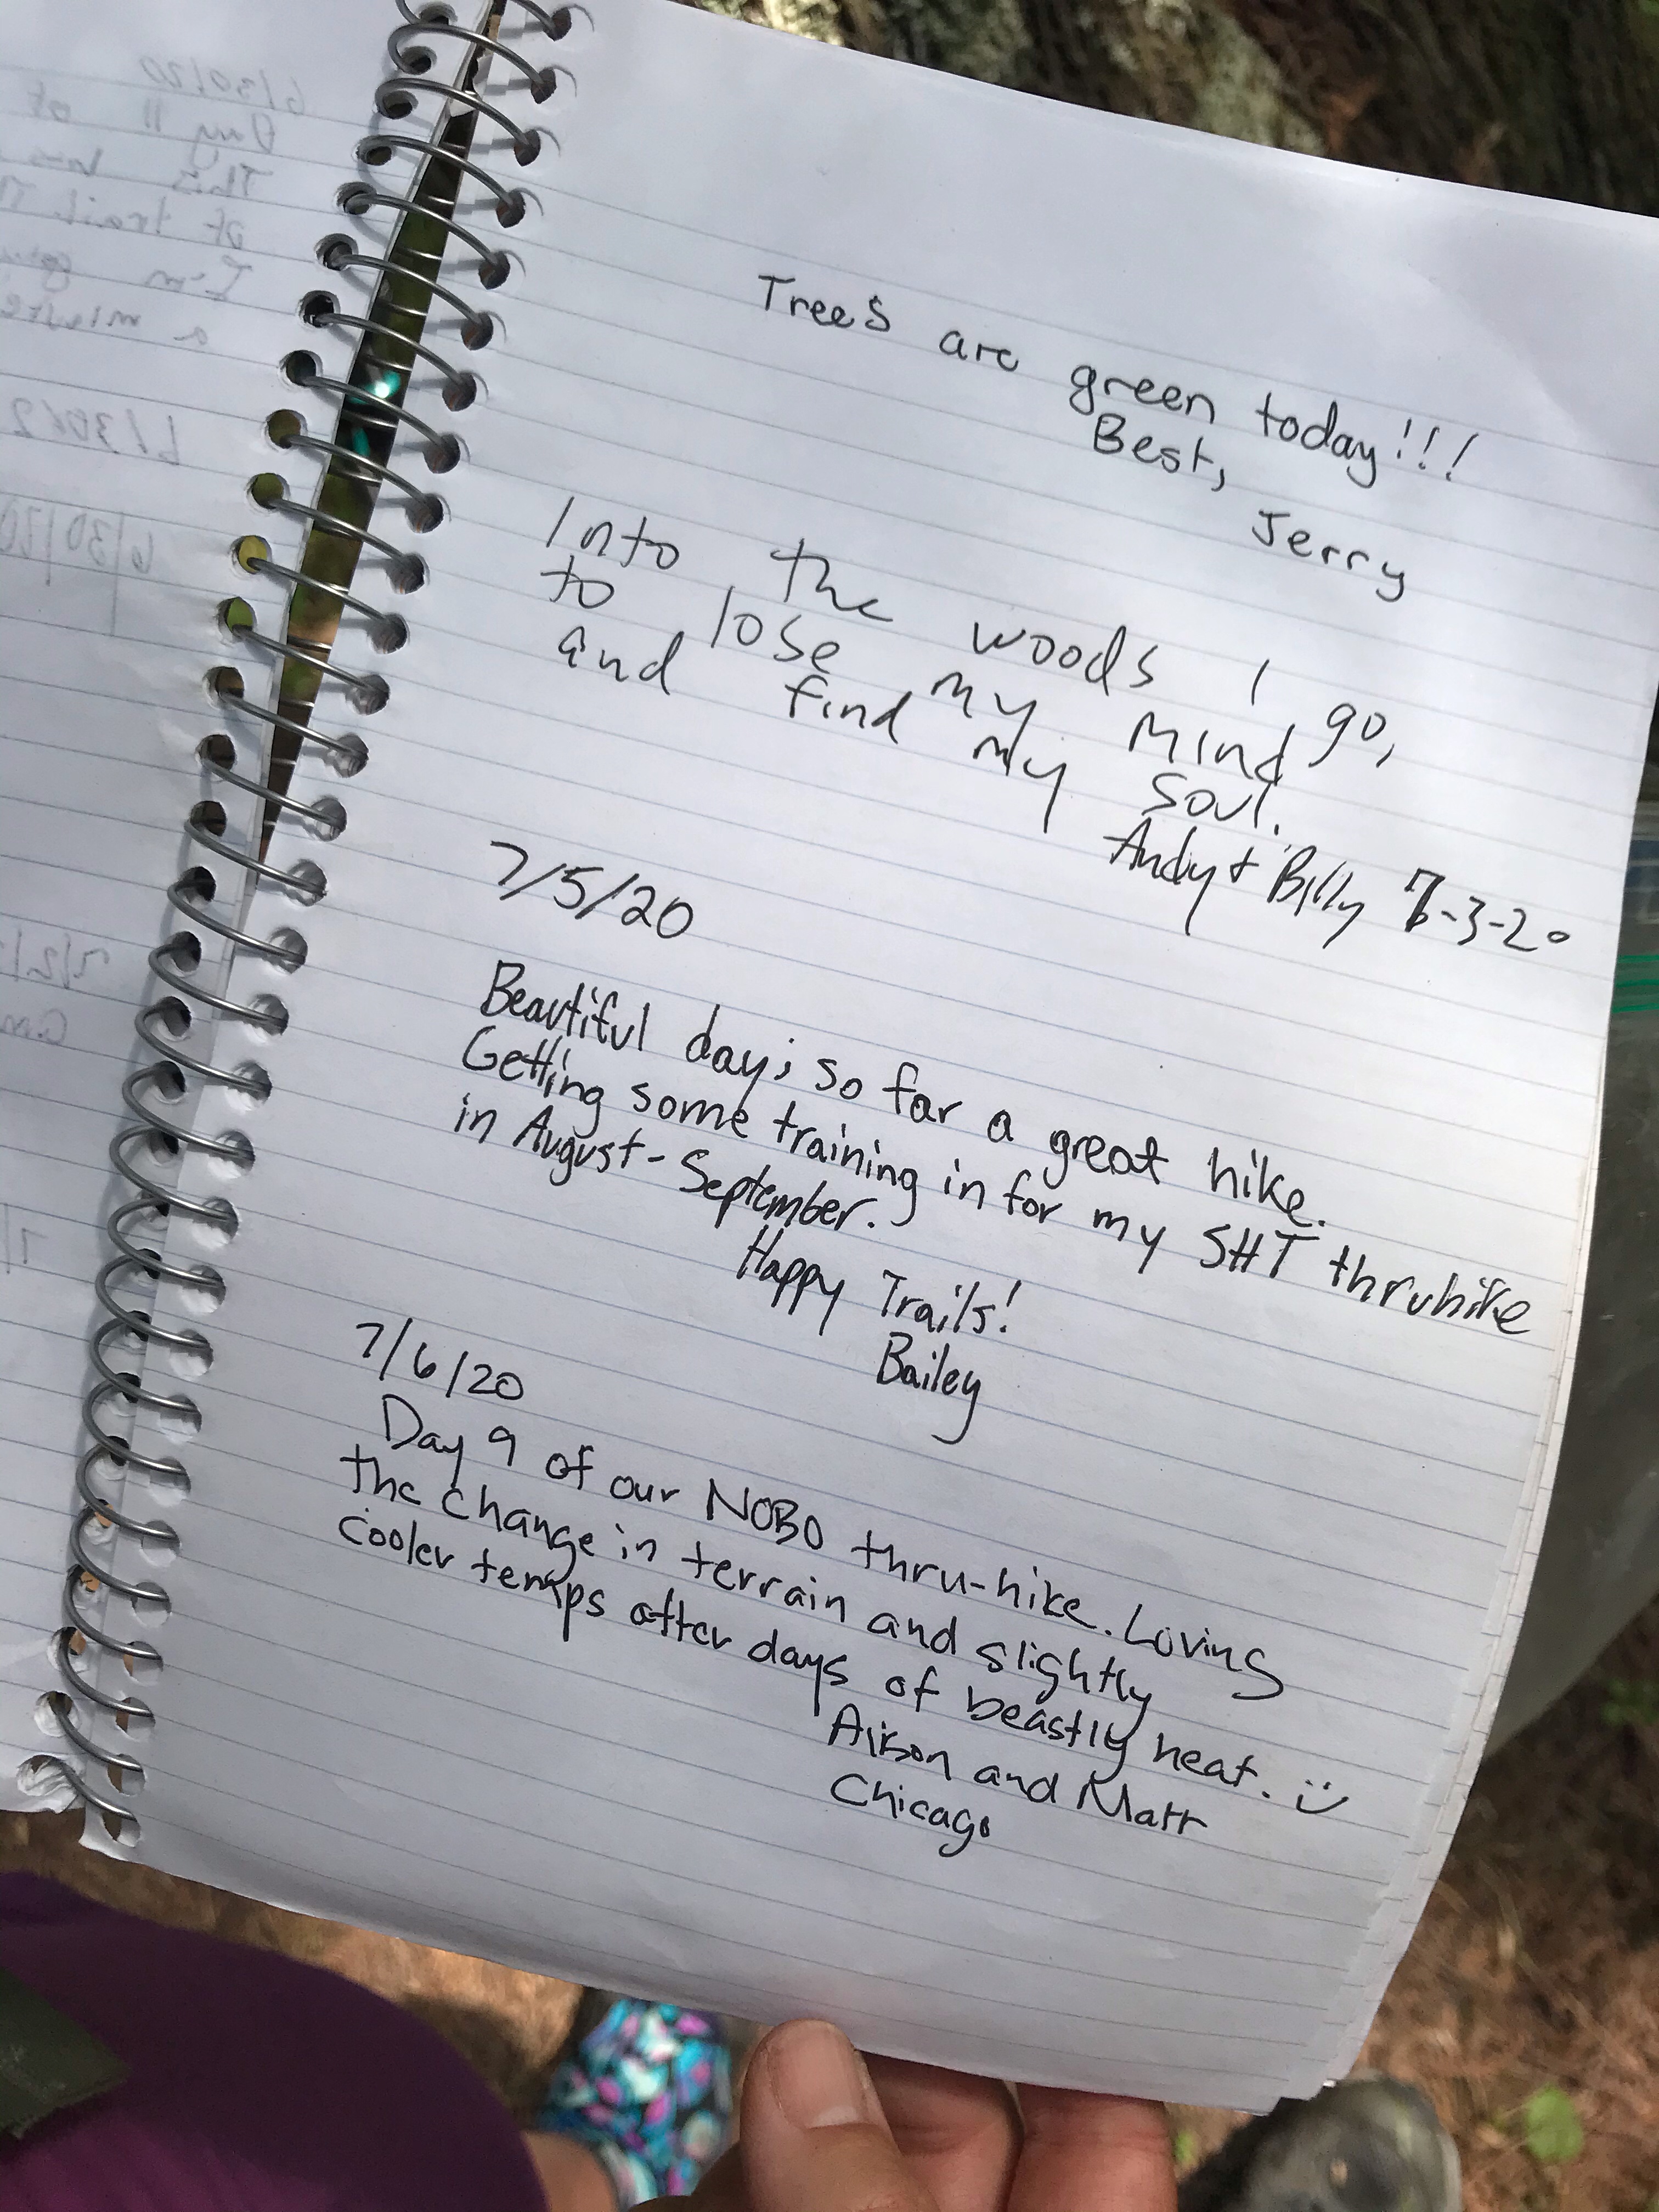 Trees are green today!!!
Best,
Jerry
Into the woods I go,
to lose my mind
and find my soul.
Andy + Billy 7-3-20
7/5/20
Beautiful day; so far a great hike.
Getting some training in for my SHT thruhike
in August - September.
Happy Trails!
Bailey
7/6/20
Day 9 of our NOBO thru-hike. Loving
the change in terrain and slightly
cooler temps after days of beastly heat. :)
Alison and Matt
Chicago